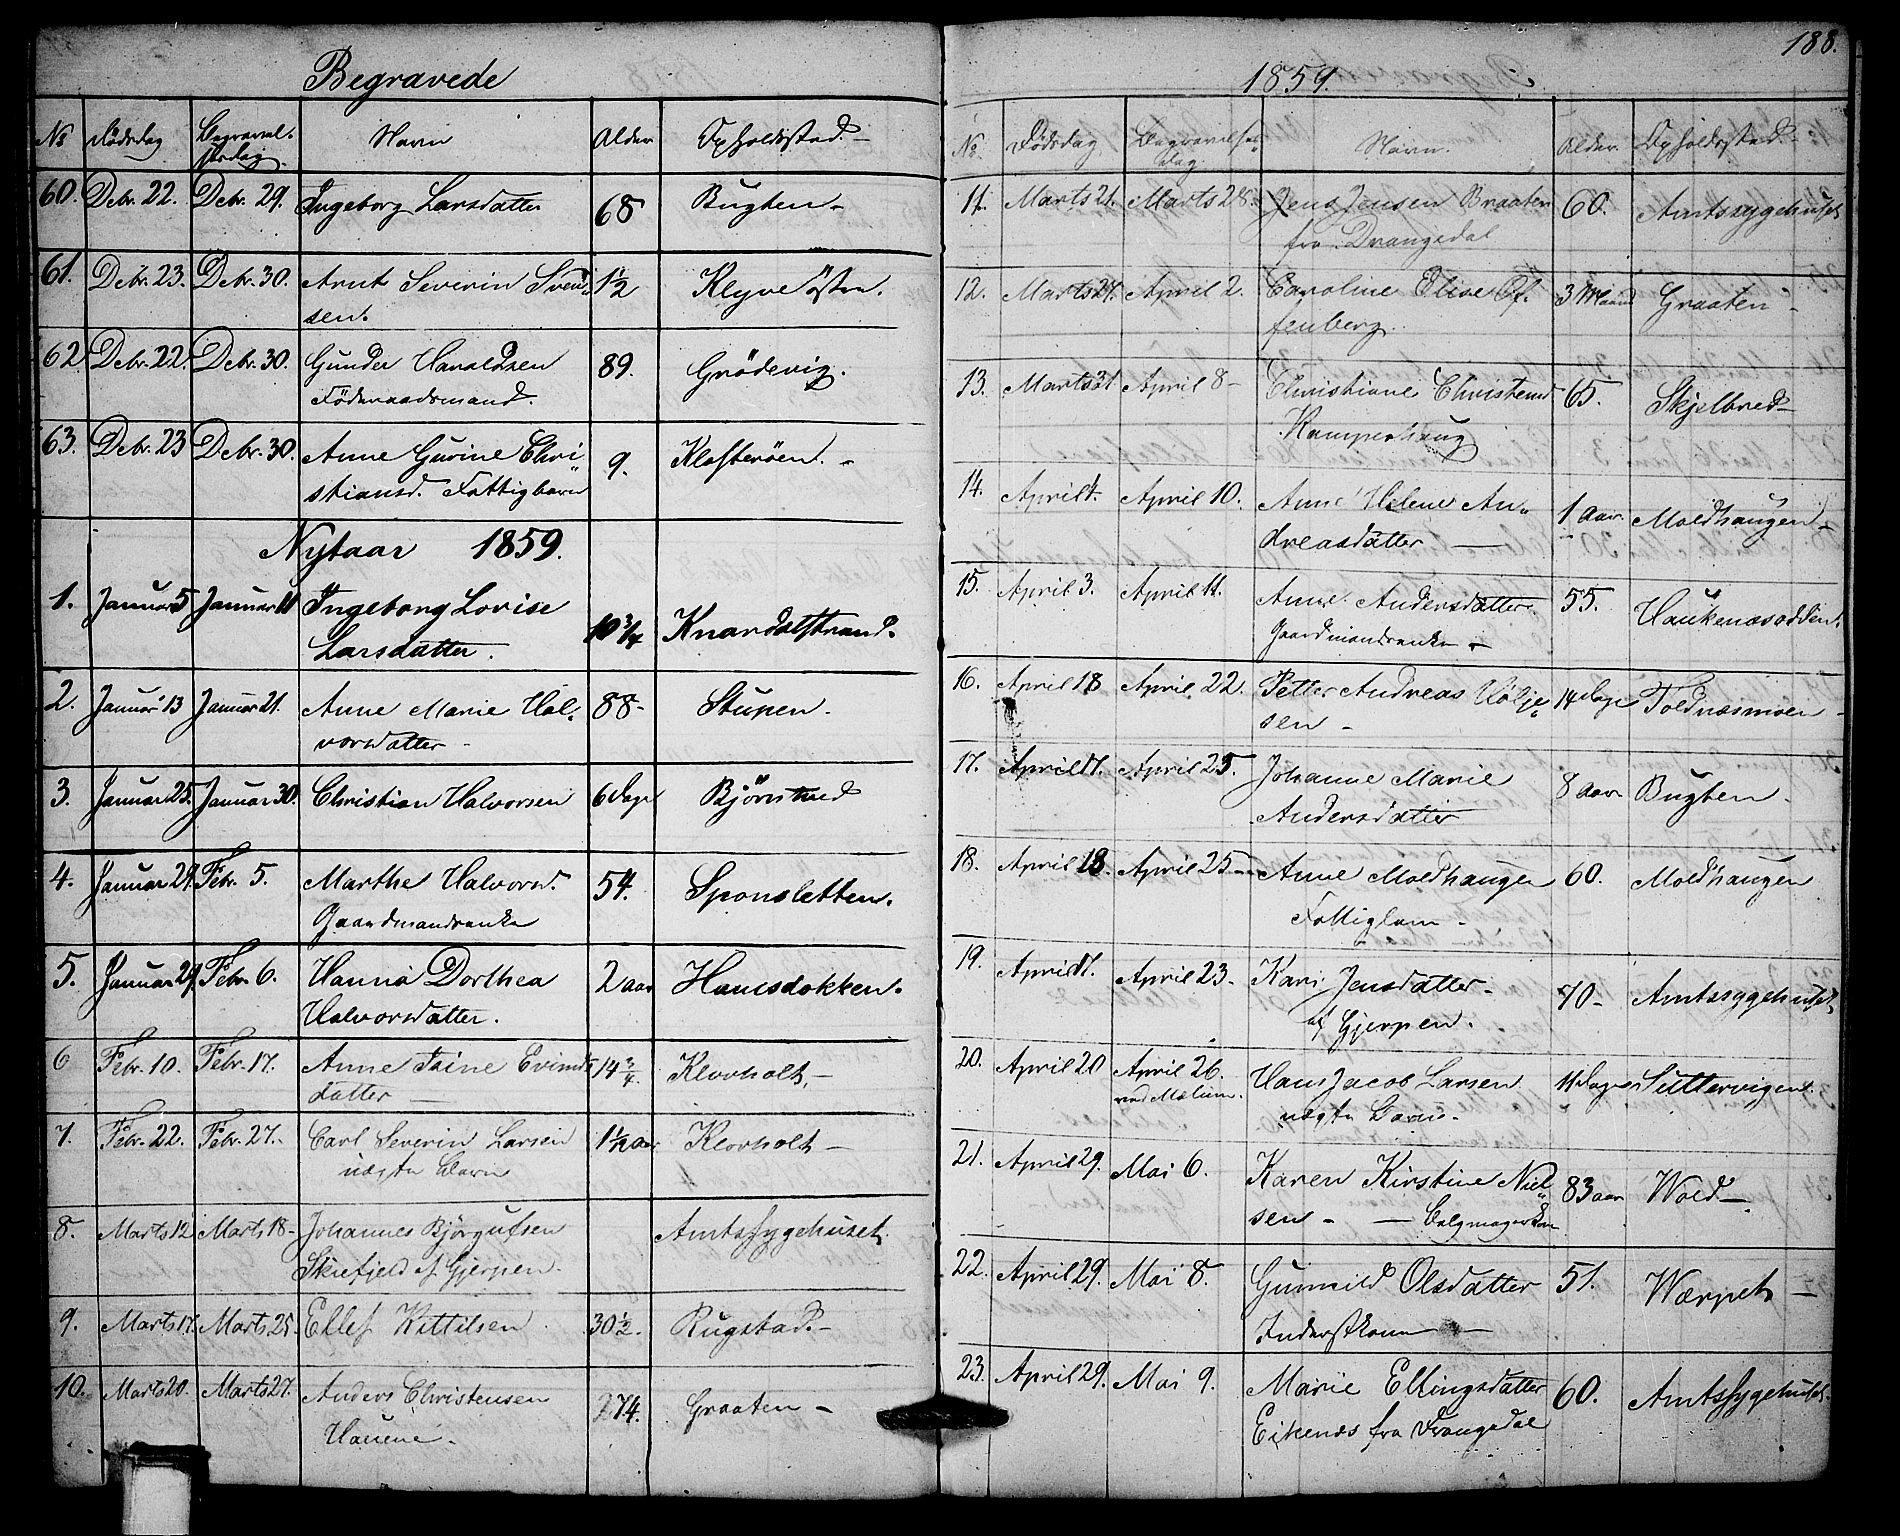 Begravede
No Dødsdag Begravelsesdag. Navn Alder Opholdsstad.
60. Debr. 22. Debr. 29. Ingeborg Larsdatter 68 Bugten.
61. Debr. 23. Debr. 30. Arnt Severin Svend- 1½ Klyve östre.
sen.
62 Debr. 22. Debr. 30. Gunder Haraldsen 89. Grödevig.
Föderaadsmand.
63. Debr. 23 Debr. 30. Anne Gurine Chri- 9. Klosteröen.
stiansd. Fattigbarn
Nytaar 1859.
1. Januar 5 Januar 11 Ingeborg Lovise 10 3/4 Knardalstrand.
Larsdatter.
2. Januar 13 Januar 21. Anne Marie Hal- 88 Stupen.
vorsdatter
3. Januar 25. Januar 30. Christian Halvorsen 6 Dage Björnstad
4. Januar 29. Febr. 5. Marthe Halvorsd. 54. Sponsletten.
Gaardmandsenke
5. Januar 29 Febr. 6. Hanna Dorthea 2 aar Hansdokken.
Halvorsdatter.
6 Febr. 10. Febr. 17. Anne Trine Evinds 14 3/4. Klovholt,
datter
7. Febr. 22. Febr. 27. Carl Severin Larsen Klovholt
uægte Barn
8. Marts 12 Marts 18 Johannes Björgufsen Amtssygehuset.
Skrefjeld af Gjerpen.
9. Marts 17. Marts 25. Ellef Kittilsen 30½. Rugstad.
10. Marts 20. Marts 27. Anders Christensen 74. Graaten
188.
1859.
No. Dødsdag Begravelsesdag. Navn. Alder. Opholdsstad
11. Marts 21. Marts 28. Jens Jensen Braaten 60. Amtssygehuset
fra Drangedal
12. Marts 27. April 2. Caroline Elise Of- 3 Maaned Graaten
fenberg.
13. Marts 31 April 8 Christiane Christensd 65. Skjelbred
Kamperhaug
14. April 4. April 10. Anne Helene An- 1 Aar. Moldhaugen
dreasdatter
15. April 3. April 11. Anne Andersdatter 55. Haukenæsodden.
Gaardmandsenke
16. April 18 April 22. Petter Andreas Höljе- 14 Dage Toldnæsmoen
sen
17. April 17. April 25. Johanne Marie 8 Aar Bugten
Andersdatter
18. April 18. April 25. Anne Moldhaugen 60. Moldhaugen
Fattiglem
19. April 17. April 23. Kari Jensdatter 70 Amtssygehuset
af Gjerpen.
20. April 20 April 26. Hans Jacob Larsen 11 Dage
ved Mælum. uægte Barn.
21. April 29. Mai 6. Karen Kirstine Niel- 83 aar Wold
sen
22. April 29. Mai 8. Gunnild Olsdatter 51. Wærpet
Inderstkone
23. April 29. Mai 9. Marie Ellingsdatter 60. Amtssygehuset.
Eikenæs fra Drangedal